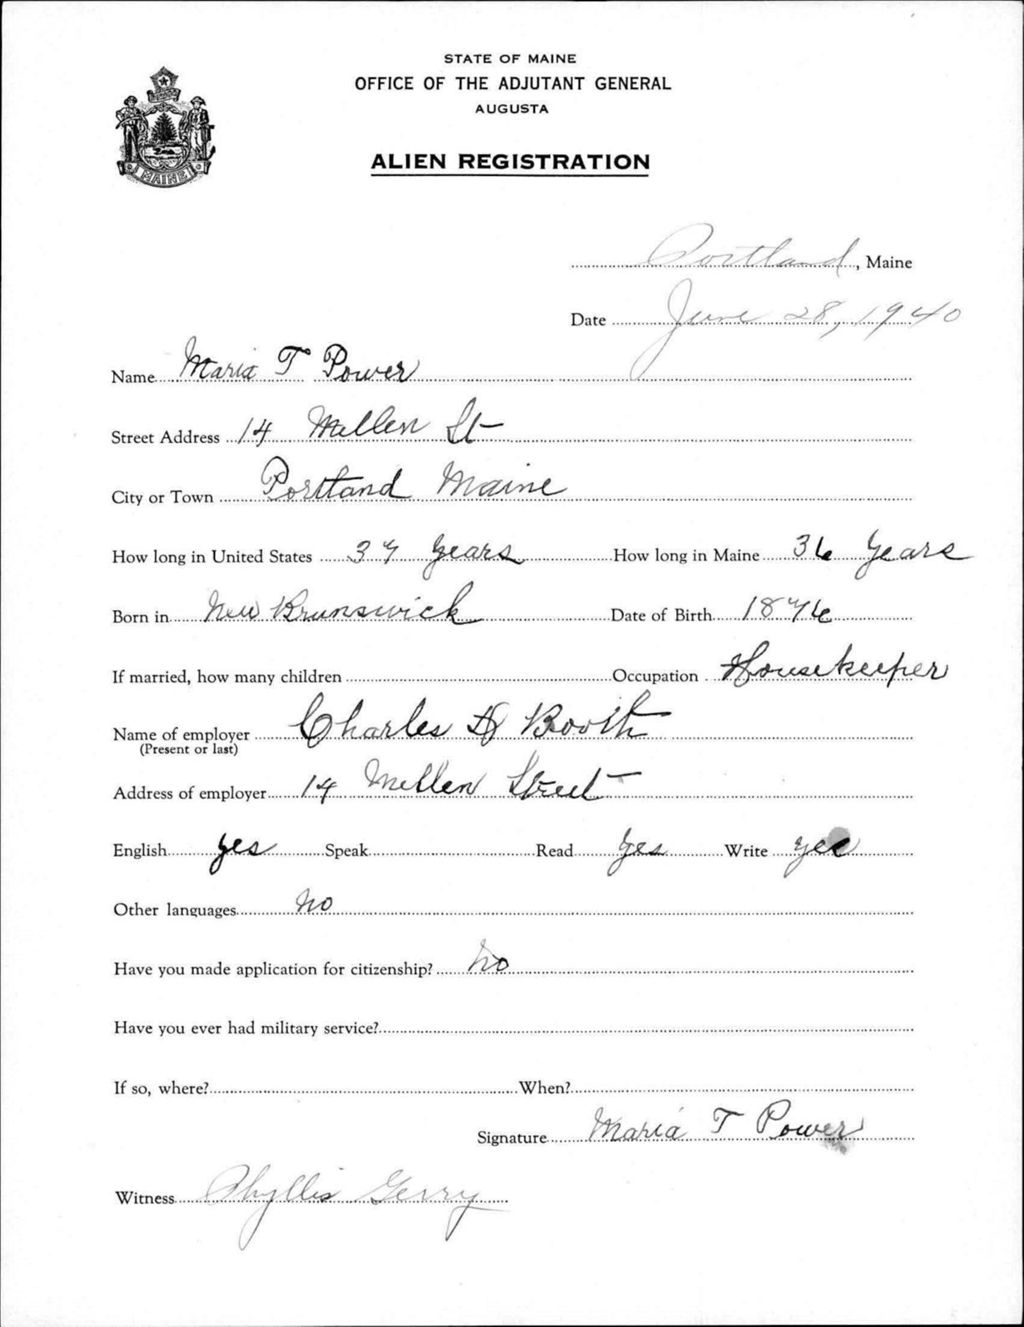 STATE OF MAINE
OFFICE OF THE ADJUTANT GENERAL
AUGUSTA
ALIEN REGISTRATION
MAINE
Portland, Maine
Date June 28, 1940
Name Maria T Power
Street Address 14 Mellen St
City or Town Portland Maine
How long in United States 37 years How long in Maine 36 Years
Born in New Brunswick Date of Birth 1876
If married, how many children Occupation Housekeeper
Name of employer Charles D Booth
(Present or last)
Address of employer 14 Mellen Street
English yes Speak Read yes Write yes
Other languages no
Have you made application for citizenship? no
Have you ever had military service?
If so, where? When?
Signature Maria T Power
Witness Phyllis Gerry